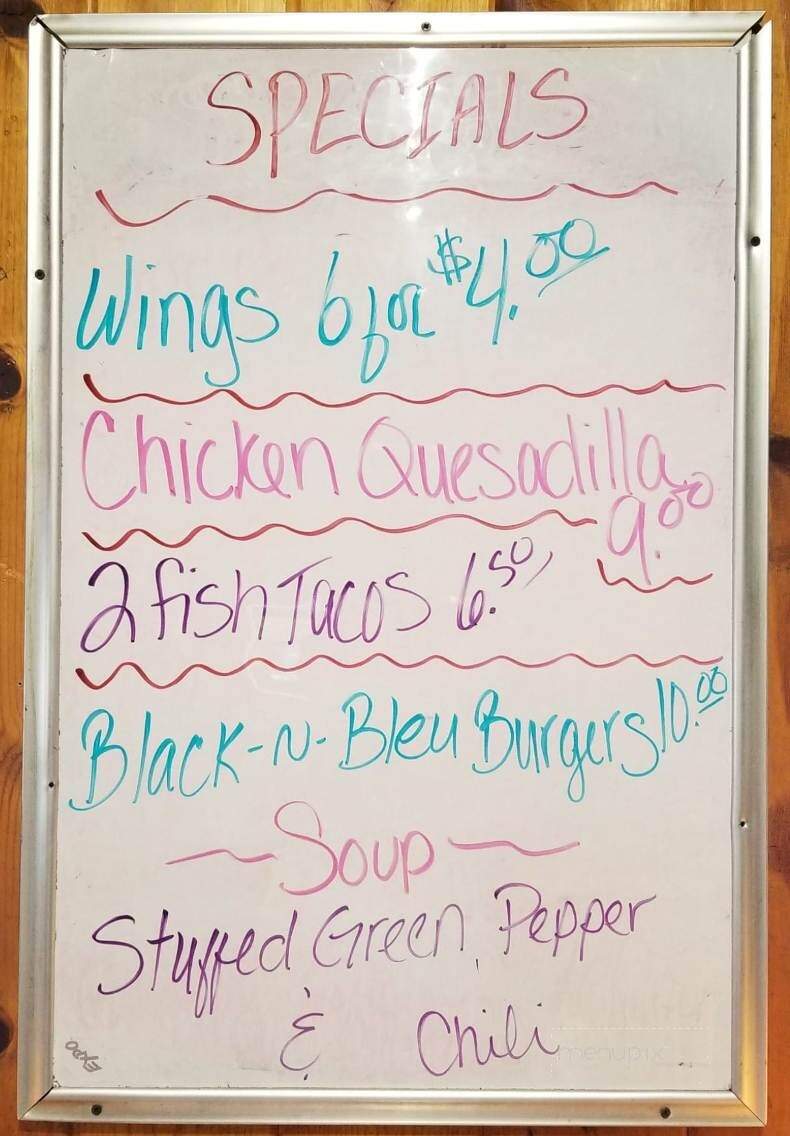 SPECIALS
Wings 6 for $4.00
Chicken Quesadilla
9.00
2 fish Tacos 6.50
Black-N-Bleu Burgers 10.00
~Soup~
Stuffed Green Pepper
& Chili
EXPO
menupix